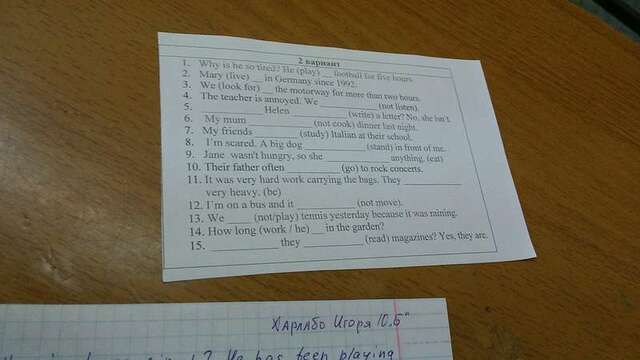 2 вариант
1. Why is he so tired? He (play) __ football for five hours.
2. Mary (live) __ in Germany since 1992.
3. We (look for) __ the motorway for more than two hours.
4. The teacher is annoyed. We __________ (not listen).
5. __________ Helen __________ (write) a letter? No, she isn't.
6. My mum __________ (not cook) dinner last night.
7. My friends ________ (study) Italian at their school.
8. I'm scared. A big dog __________ (stand) in front of me.
9. Jane wasn't hungry, so she __________ anything, (eat)
10. Their father often __________ (go) to rock concerts.
11. It was very hard work carrying the bags. They __________
very heavy. (be)
12. I'm on a bus and it __________ (not move).
13. We _____ (not/play) tennis yesterday because it was raining.
14. How long (work / he) __ in the garden?
15. __________ they __________ (read) magazines? Yes, they are.
Харлабо Игоря 10"Б"
? He has been playing